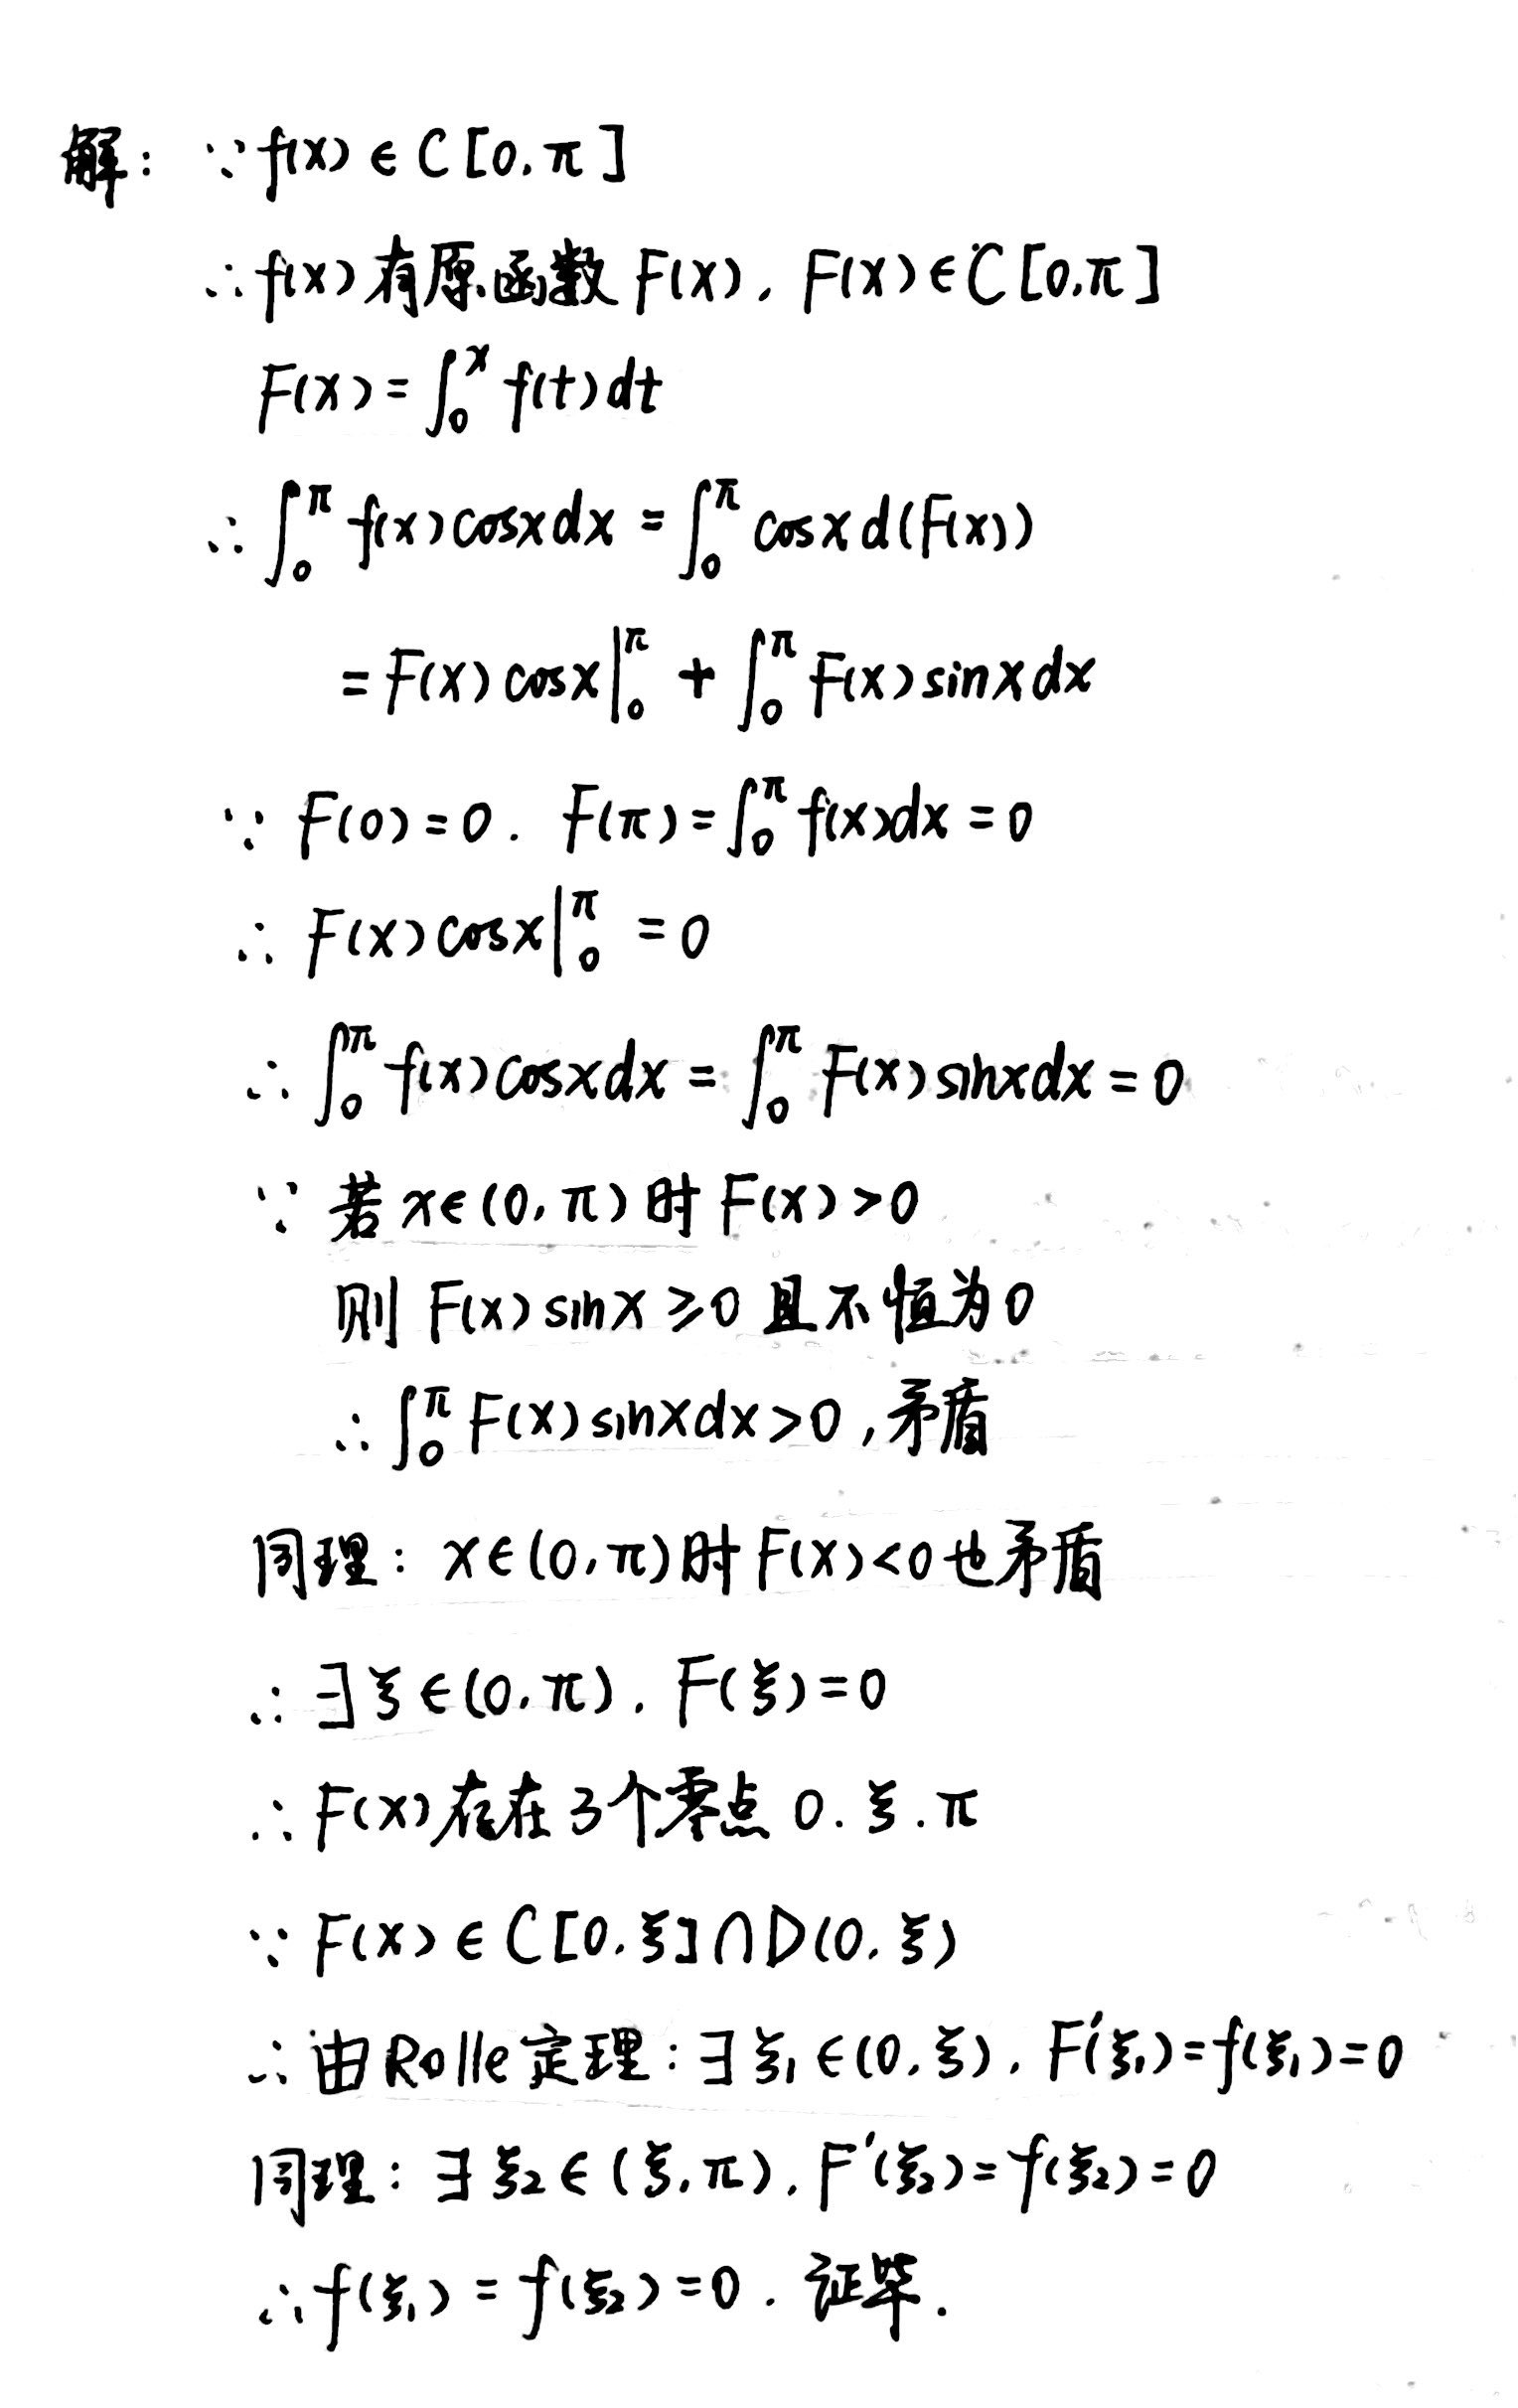 解：∵ f(x) ∈ C [0, π]
∴ f(x) 有原函数 F(x), F(x) ∈ C [0, π]
F(x) = ∫₀ˣ f(t) dt
∴ ∫₀^π f(x) cosx dx = ∫₀^π cosx d(F(x))
= F(x) cosx |₀^π + ∫₀^π F(x) sinx dx
∵ F(0) = 0. F(π) = ∫₀^π f(x) dx = 0
∴ F(x) cosx |₀^π = 0
∴ ∫₀^π f(x) cosx dx = ∫₀^π F(x) sinx dx = 0
∵ 若 x ∈ (0, π) 时 F(x) > 0
则 F(x) sinx ≥ 0 且不恒为 0
∴ ∫₀^π F(x) sinx dx > 0, 矛盾
同理: x ∈ (0, π) 时 F(x) < 0 也矛盾
∴ ∃ ξ ∈ (0, π), F(ξ) = 0
∴ F(x) 存在 3个零点 0. ξ. π
∵ F(x) ∈ C[0, ξ] ∩ D(0, ξ)
∴ 由 Rolle 定理: ∃ ξ₁ ∈ (0, ξ), F'(ξ₁) = f(ξ₁) = 0
同理: ∃ ξ₂ ∈ (ξ, π), F'(ξ₂) = f(ξ₂) = 0
∴ f(ξ₁) = f(ξ₂) = 0. 证毕.